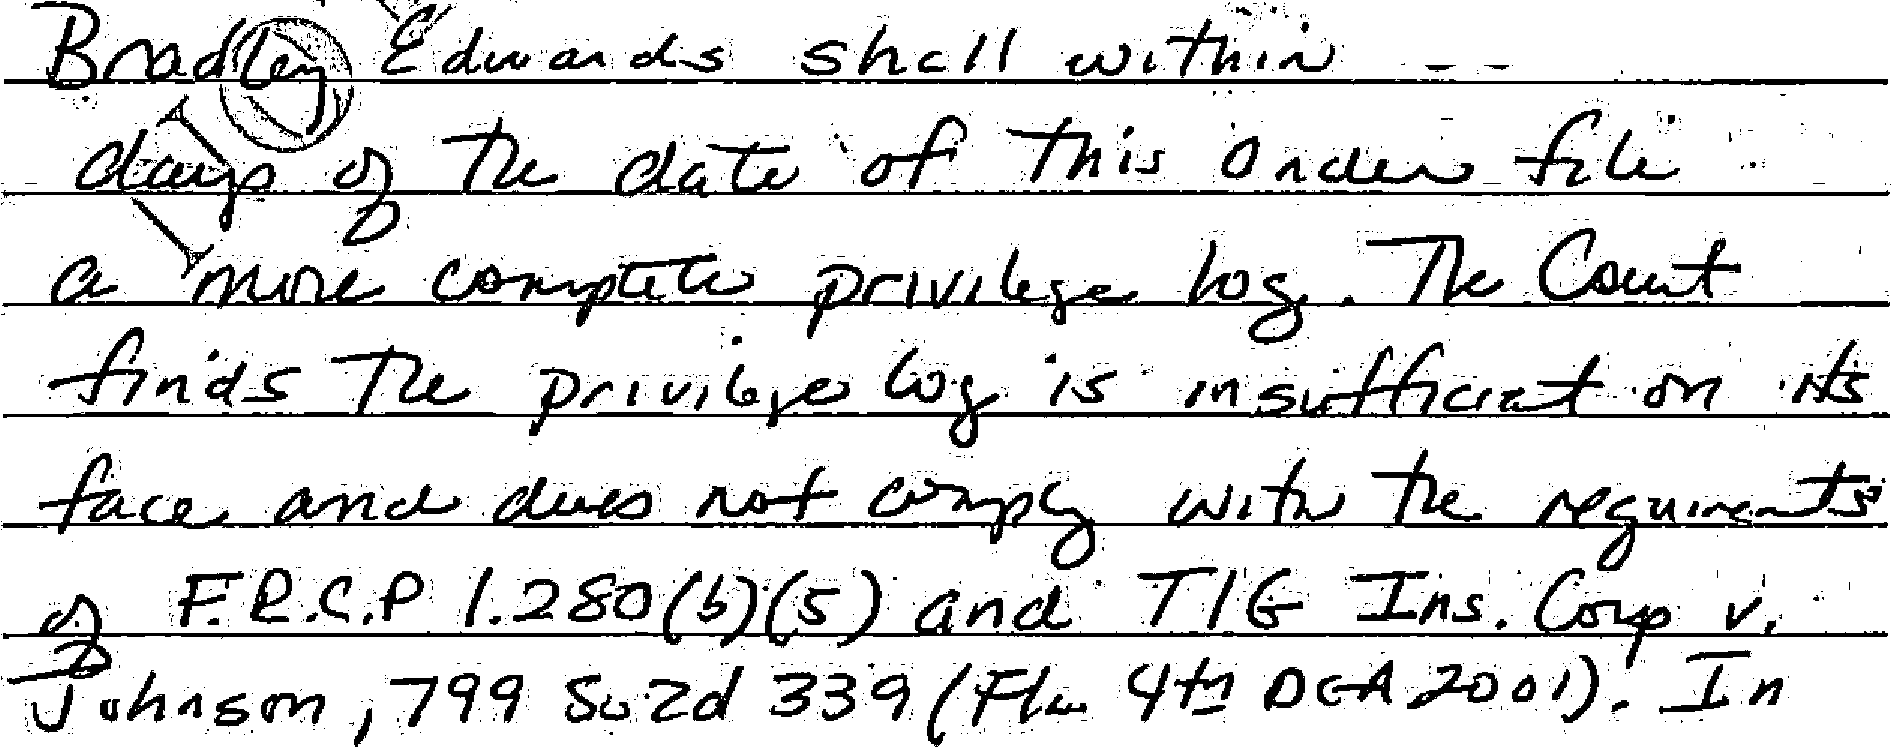 Bradley Edwards shall within
days of the date of this Order file
a more complete privilege log. The Court
finds the privilege log is insufficient on its
face and does not comply with the requirements
of F.R.C.P 1.280(b)(5) and TIG Ins. Corp v.
Johnson, 799 So 2d 339 (Fla 4th DCA 2001). In